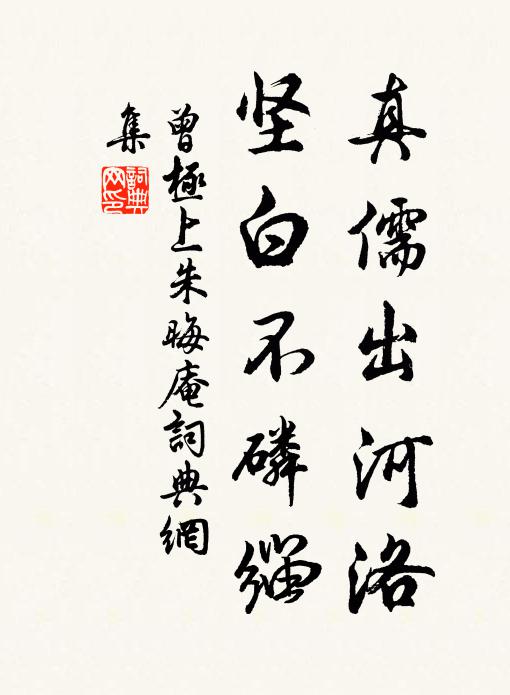 真儒出河洛
坚白不磷缁
曾極上朱晦庵詞典網
集
詞典网印